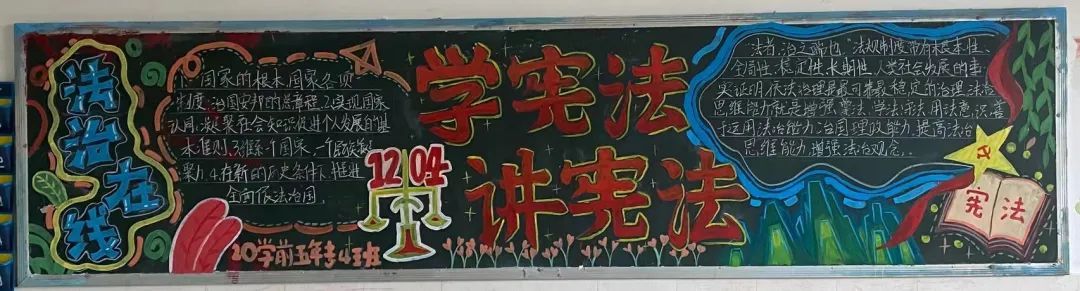 法治在线
1. 国家的根本,国家各项
制度、治国安邦的总章程。2.实现国家
认同,凝聚社会知识促进个人发展的基
本准则。3.维系一个国家、一个民族凝
聚力。4.在新的历史条件下,推进
全面依法治国。
12 04
20学前五年专4班
学宪法
讲宪法
法者,治之端也,法规制度带有根本性、
全局性、稳定性、长期性,人类社会发展的事
实证明,依法治理是最可靠最稳定的治理,法治
思维能力就是增强尊法、学法、守法、用法意识,善
于运用法治能力、治国理政能力,提高法治
思维能力,增强法治观念。
宪法